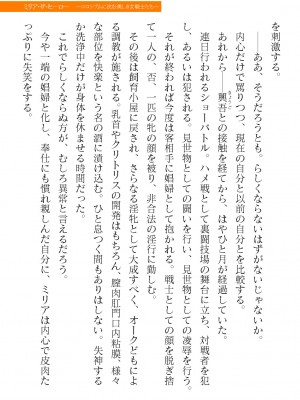 を刺激する。
――ああ、そうだろうとも。らしくならないはずがないじゃないか。
内心だけで罵りつつ、現在の自分と以前の自分とを比較する。
――興吾との接触を経てから、はやひと月が経過していた。
連日行われるショーバトル。ハメ戦として裏闘技場の舞台に立ち、対戦者を犯
し、あるいは犯される。見世物としての闘いを行い、見世物としての凌辱を行う。
それが終われば今度は客相手に娼婦として抱かれる。戦士としての顔を脱ぎ捨
て一人の、否、一匹の牝の顔を被り、非合法の淫行に勤しむ。
その後は飼育小屋に戻され、さらなる淫牝として大成すべく、オークどもによ
る調教が施される。乳首やクリトリスの開発はもちろん、膣肉肛門口内粘膜、様々
な部位を快楽という名の酒に漬け込む。ひと息つく間もありはしない。失神する
か洗浄中だけが身体を休ませる時間だった。
これでらしくならぬ方が、むしろ異常と言えるだろう。
今や一端の娼婦と化し、奉仕にも慣れ親しんだ自分に、ミリアは内心で皮肉た
っぷりに失笑をする。